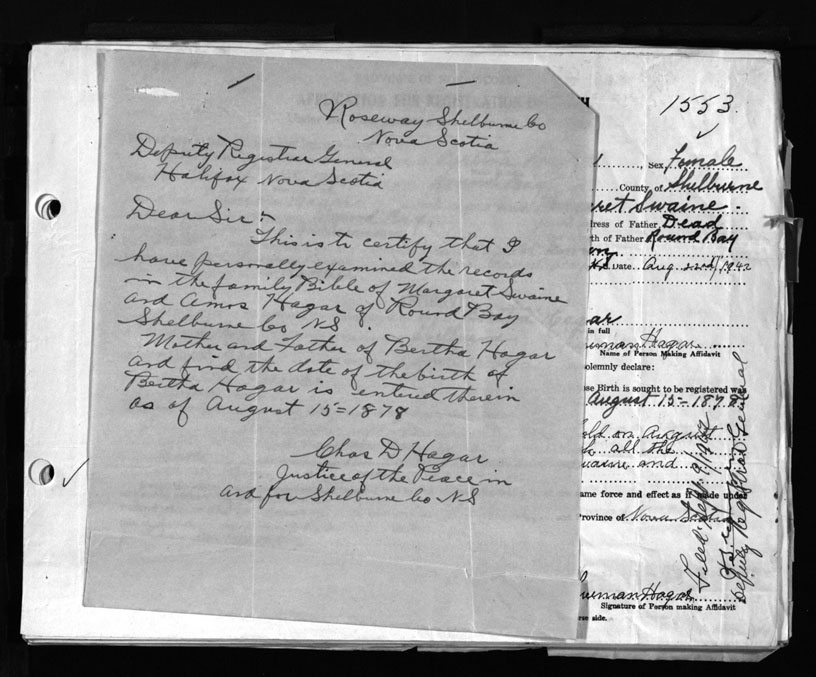 Roseway Shelburne Co
Nova Scotia
Deputy Registrar General
Halifax Nova Scotia
Dear Sir:-
This is to certify that I
have personally examined the records
in the family Bible of Margaret Swaine
and Amos Hagar of Round Bay
Shelburne Co NS.
Mother and Father of Bertha Hagar
and find the date of the birth of
Bertha Hagar is entered therein
as of August 15=1878
Chas D Hagar
Justice of the Peace in
and for Shelburne Co NS
1553
Sex, Female
County of Shelburne
ret Swaine.
ress of Father Dead
th of Father Round Bay
Date Aug 22nd/1942
gar
in full
Hagar
Name of Person Making Affidavit
olemnly declare:
ose Birth is sought to be registered was
August 15-1878
old on August
all the
and
ame force and effect as if made under
Province of Nova Scotia
Truman Hagar
Signature of Person making Affidavit
rse side.
Deputy Registrar General